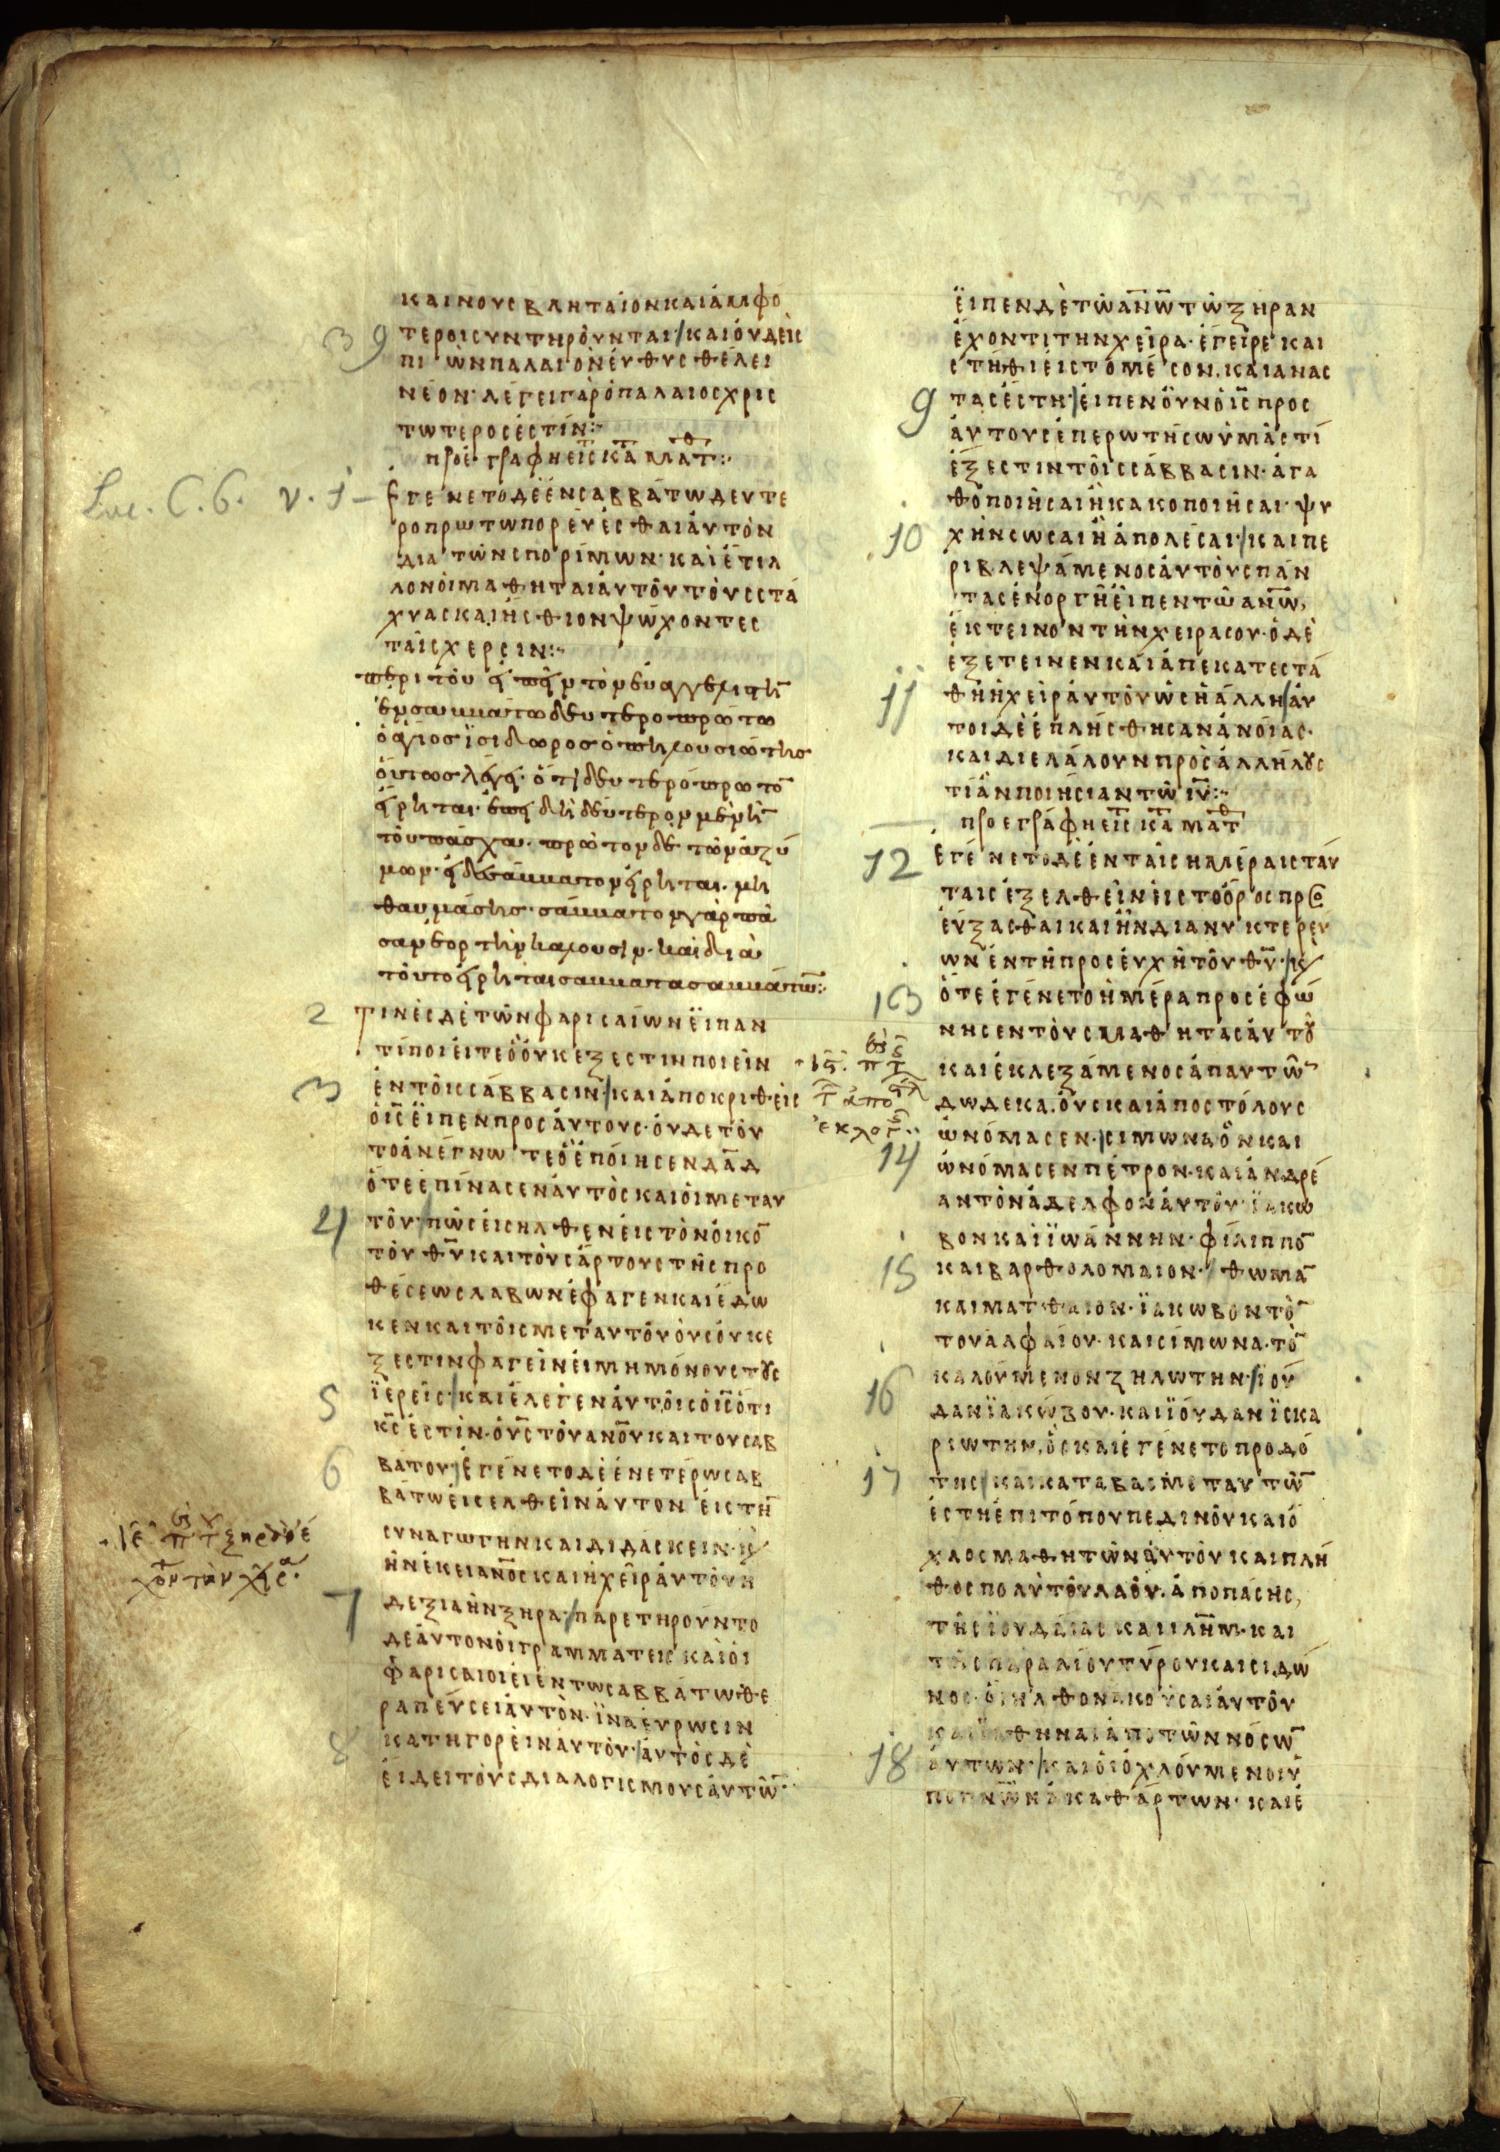 ΚΑΙΝΟΥΣ ΒΛΗΤΑΙΟΝ ΚΑΙ ΑΜΦΟ
39 ΤΕΡΟΙ ΣΥΝΤΗΡΟΥΝΤΑΙ· / ΚΑΙ ΟΥΔΕΙΣ
ΠΙΩΝ ΠΑΛΑΙΟΝ ΕΥΘΥΣ ΘΕΛΕΙ
ΝΕΟΝ· ΛΕΓΕΙ ΓΑΡ Ο ΠΑΛΑΙΟΣ ΧΡΙΣ
ΤΩΤΕΡΟΣ ΕΣΤΙΝ:~
προεγραφη εις κατα Ματθ:~
Luc. C. 6. v. 1 – ΕΓΕΝΕΤΟ ΔΕ ΕΝ ΣΑΒΒΑΤΩ ΔΕΥΤΕ
ΡΟΠΡΩΤΩ ΠΟΡΕΥΕΣΘΑΙ ΑΥΤΟΝ
ΔΙΑ ΤΩΝ ΣΠΟΡΙΜΩΝ· ΚΑΙ ΕΤΙΛ
ΛΟΝ ΟΙ ΜΑΘΗΤΑΙ ΑΥΤΟΥ ΤΟΥΣ ΣΤΑ
ΧΥΑΣ ΚΑΙ ΗΣΘΙΟΝ ΨΩΧΟΝΤΕΣ
ΤΑΙΣ ΧΕΡΣΙΝ:~
περὶ τοῦ εἰπεῖν τὸν εὐαγγελιστὴν
ἐν σαββάτω δευτεροπρώτω
ὁ ἅγιος ϊσίδωρος ὁ πηλουσιώτης
οὕτως λέγει· ὅτι δευτερόπρωτον
εἴρηται· ἐπειδὴ δεύτερον μὲν ἦν
τοῦ πάσχα· πρῶτον δὲ τῶν ἀζύ
μων· εἰ δὲ σάββατον εἴρηται· μὴ
θαυμάσης· σάββατον γὰρ πᾶ
σαν ἑορτὴν καλοῦσιν· καὶ διὰ
τοῦτο εἴρηται σάββατα σαββάτων:~
2 ΤΙΝΕΣ ΔΕ ΤΩΝ ΦΑΡΙΣΑΙΩΝ ΕΙΠΑΝ
ΤΙ ΠΟΙΕΙΤΕ Ο ΟΥΚ ΕΞΕΣΤΙΝ ΠΟΙΕΙΝ
3 ΕΝ ΤΟΙΣ ΣΑΒΒΑΣΙΝ· / ΚΑΙ ΑΠΟΚΡΙΘΕΙΣ
Ο ΙΣ ΕΙΠΕΝ ΠΡΟΣ ΑΥΤΟΥΣ· ΟΥΔΕ ΤΟΥ
ΤΟ ΑΝΕΓΝΩΤΕ Ο ΕΠΟΙΗΣΕΝ ΔΑΔ
ΟΤΕ ΕΠΙΝΑΣΕΝ ΑΥΤΟΣ ΚΑΙ ΟΙ ΜΕΤ ΑΥ
4 ΤΟΥ· / ΠΩΣ ΕΙΣΗΛΘΕΝ ΕΙΣ ΤΟΝ ΟΙΚΟ̅
ΤΟΥ ΘΥ ΚΑΙ ΤΟΥΣ ΑΡΤΟΥΣ ΤΗΣ ΠΡΟ
ΘΕΣΕΩΣ ΛΑΒΩΝ ΕΦΑΓΕΝ ΚΑΙ ΕΔΩ
ΚΕΝ ΚΑΙ ΤΟΙΣ ΜΕΤ ΑΥΤΟΥ ΟΥΣ ΟΥΚ Ε
ΞΕΣΤΙΝ ΦΑΓΕΙΝ ΕΙ ΜΗ ΜΟΝΟΥΣ ΤΟΥΣ
5 ΙΕΡΕΙΣ· / ΚΑΙ ΕΛΕΓΕΝ ΑΥΤΟΙΣ Ο ΙΣ ΟΤΙ
ΚΣ ΕΣΤΙΝ· Ο ΥΣ ΤΟΥ ΑΝΟΥ ΚΑΙ ΤΟΥ ΣΑΒ
6 ΒΑΤΟΥ· / ΕΓΕΝΕΤΟ ΔΕ ΕΝ ΕΤΕΡΩ ΣΑΒ
ΒΑΤΩ ΕΙΣΕΛΘΕΙΝ ΑΥΤΟΝ ΕΙΣ ΤΗ̅
ΣΥΝΑΓΩΓΗΝ ΚΑΙ ΔΙΔΑΣΚΕΙΝ· Κ/
ΗΝ ΕΚΕΙ ΑΝΟΣ ΚΑΙ Η ΧΕΙΡ ΑΥΤΟΥ Η
7 ΔΕΞΙΑ ΗΝ ΞΗΡΑ· / ΠΑΡΕΤΗΡΟΥΝΤΟ
ΔΕ ΑΥΤΟΝ ΟΙ ΓΡΑΜΜΑΤΕΙΣ ΚΑΙ ΟΙ
ΦΑΡΙΣΑΙΟΙ ΕΙ ΕΝ ΤΩ ΣΑΒΒΑΤΩ ΘΕ
ΡΑΠΕΥΣΕΙ ΑΥΤΟΝ· ΙΝΑ ΕΥΡΩΣΙΝ
8 ΚΑΤΗΓΟΡΕΙΝ ΑΥΤΟΥ· / ΑΥΤΟΣ ΔΕ
ΕΙΔΕΙ ΤΟΥΣ ΔΙΑΛΟΓΙΣΜΟΥΣ ΑΥΤΩ̅·
ΕΙΠΕΝ ΔΕ ΤΩ ΑΝΩ ΤΩ ΞΗΡΑΝ
ΕΧΟΝΤΙ ΤΗΝ ΧΕΙΡΑ· ΕΓΕΙΡΕ ΚΑΙ
ΣΤΗΘΙ ΕΙΣ ΤΟ ΜΕΣΟΝ· ΚΑΙ ΑΝΑΣ
9 ΤΑΣ ΕΣΤΗ· / ΕΙΠΕΝ ΟΥΝ Ο ΙΣ ΠΡΟΣ
ΑΥΤΟΥΣ ΕΠΕΡΩΤΗΣΩ ΥΜΑΣ ΤΙ
ΕΞΕΣΤΙΝ ΤΟΙΣ ΣΑΒΒΑΣΙΝ· ΑΓΑ
ΘΟΠΟΙΗΣΑΙ Η ΚΑΚΟΠΟΙΗΣΑΙ· ΨΥ
10 ΧΗΝ ΣΩΣΑΙ Η ΑΠΟΛΕΣΑΙ· / ΚΑΙ ΠΕ
ΡΙΒΛΕΨΑΜΕΝΟΣ ΑΥΤΟΥΣ ΠΑΝ
ΤΑΣ ΕΝ ΟΡΓΗ ΕΙΠΕΝ ΤΩ ΑΝΩ,
ΕΚΤΕΙΝΟΝ ΤΗΝ ΧΕΙΡΑ ΣΟΥ· Ο ΔΕ
ΕΞΕΤΕΙΝΕΝ ΚΑΙ ΑΠΕΚΑΤΕΣΤΑ
11 ΘΗ Η ΧΕΙΡ ΑΥΤΟΥ ΩΣ Η ΑΛΛΗ / ΑΥ
ΤΟΙ ΔΕ ΕΠΛΗΣΘΗΣΑΝ ΑΝΟΙΑΣ·
ΚΑΙ ΔΙΕΛΑΛΟΥΝ ΠΡΟΣ ΑΛΛΗΛΟΥΣ
ΤΙ ΑΝ ΠΟΙΗΣΙΑΝ ΤΩ ΙΥ:~
προεγραφη εις κατα Ματθ
12 ΕΓΕΝΕΤΟ ΔΕ ΕΝ ΤΑΙΣ ΗΜΕΡΑΙΣ ΤΑΥ
ΤΑΙΣ ΕΞΕΛΘΕΙΝ ΕΙΣ ΤΟ ΟΡΟΣ ΠΡΟΣ
ΕΥΞΑΣΘΑΙ ΚΑΙ ΗΝ ΔΙΑΝΥΚΤΕΡΕΥ
ΩΝ ΕΝ ΤΗ ΠΡΟΣΕΥΧΗ ΤΟΥ ΘΥ· / Κ/
13 ΟΤΕ ΕΓΕΝΕΤΟ ΗΜΕΡΑ ΠΡΟΣΕΦΩ
ΝΗΣΕΝ ΤΟΥΣ ΜΑΘΗΤΑΣ ΑΥΤΟΥ
ΚΑΙ ΕΚΛΕΞΑΜΕΝΟΣ ΑΠ ΑΥΤΩ̅
ΔΩΔΕΚΑ· ΟΥΣ ΚΑΙ ΑΠΟΣΤΟΛΟΥΣ
14 ΩΝΟΜΑΣΕΝ· / ΣΙΜΩΝΑ ΟΝ ΚΑΙ
ΩΝΟΜΑΣΕΝ ΠΕΤΡΟΝ· ΚΑΙ ΑΝΔΡΕ
ΑΝ ΤΟΝ ΑΔΕΛΦΟΝ ΑΥΤΟΥ· ΙΑΚΩ
ΒΟΝ ΚΑΙ ΙΩΑΝΝΗΝ· ΦΙΛΙΠΠΟ̅
15 ΚΑΙ ΒΑΡΘΟΛΟΜΑΙΟΝ· / ΘΩΜΑ̅
ΚΑΙ ΜΑΤΘΑΙΟΝ· ΙΑΚΩΒΟΝ ΤΟ̅
ΤΟΥ ΑΛΦΑΙΟΥ· ΚΑΙ ΣΙΜΩΝΑ· ΤΟ̅
16 ΚΑΛΟΥΜΕΝΟΝ ΖΗΛΩΤΗΝ· / ΙΟΥ
ΔΑΝ ΙΑΚΩΒΟΥ· ΚΑΙ ΙΟΥΔΑΝ ΙΣΚΑ
ΡΙΩΤΗΝ· ΟΣ ΚΑΙ ΕΓΕΝΕΤΟ ΠΡΟΔΟ
17 ΤΗΣ / ΚΑΙ ΚΑΤΑΒΑΣ ΜΕΤ ΑΥΤΩ̅
ΕΣΤΗ ΕΠΙ ΤΟΠΟΥ ΠΕΔΙΝΟΥ ΚΑΙ Ο
ΧΛΟΣ ΜΑΘΗΤΩΝ ΑΥΤΟΥ ΚΑΙ ΠΛΗ
ΘΟΣ ΠΟΛΥ ΤΟΥ ΛΑΟΥ· ΑΠΟ ΠΑΣΗΣ,
ΤΗΣ ΙΟΥΔΑΙΑΣ ΚΑΙ ΙΛΗΜ· ΚΑΙ
ΤΗΣ ΠΑΡΑΛΙΟΥ ΤΥΡΟΥ ΚΑΙ ΣΙΔΩ
ΝΟΣ· ΟΙ ΗΛΘΟΝ ΑΚΟΥΣΑΙ ΑΥΤΟΥ
ΚΑΙ ΙΑΘΗΝΑΙ ΑΠΟ ΤΩΝ ΝΟΣΩ̅
18 ΑΥΤΩΝ· / ΚΑΙ ΟΙ ΟΧΛΟΥΜΕΝΟΙ Υ
ΠΟ ΠΝΩΝ ΑΚΑΘΑΡΤΩΝ· ΚΑΙ Ε